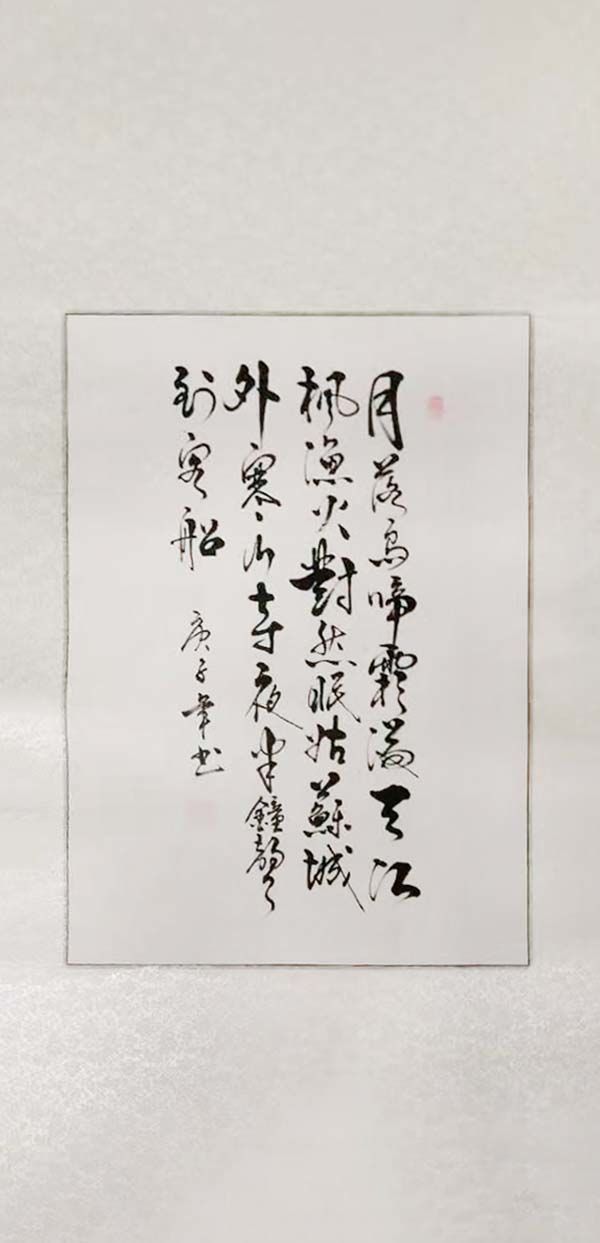 月落烏啼霜滿天江
楓漁火對愁眠姑蘇城
外寒山寺夜半鐘聲
到客船
庚子年書